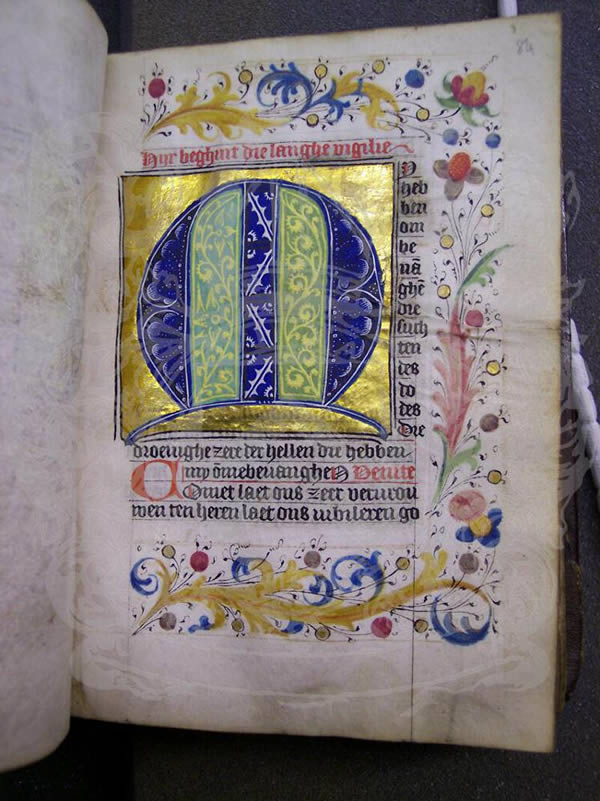 84
Hyr beghint die langhe vigilie
M
y
heb
ben
om
be
uā
ghē
die
such
ten
des
do
des
Die
droeinghe zere der hellen die hebben
my ōmebeuanghen Venite
Comet laet ons zeer verurou
wen ten heren laet ons iubileren go